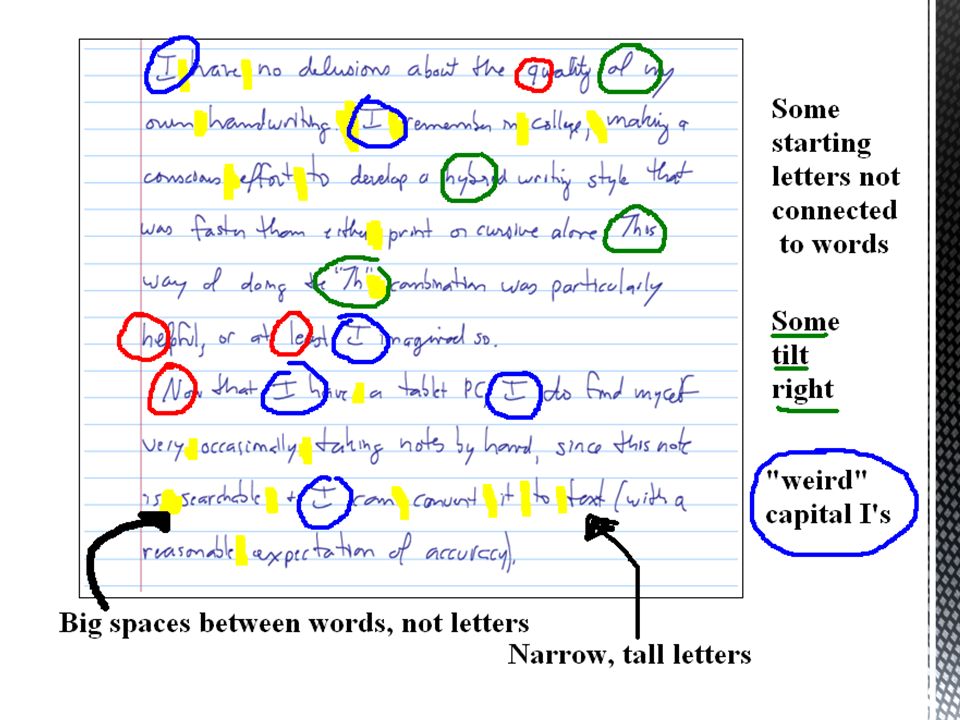 I have no delusions about the quality of my
own handwriting. I remember in college, making a
conscious effort to develop a hybrid writing style that
was faster than either print or cursive alone. This
way of doing the "Th" combination was particularly
helpful, or at least I imagined so.
Now that I have a tablet PC, I do find myself
very occasionally taking notes by hand, since this note
is searchable + I can convert it to text (with a
reasonable expectation of accuracy).
Some
starting
letters not
connected
to words
Some
tilt
right
"weird"
capital I's
Big spaces between words, not letters
Narrow, tall letters